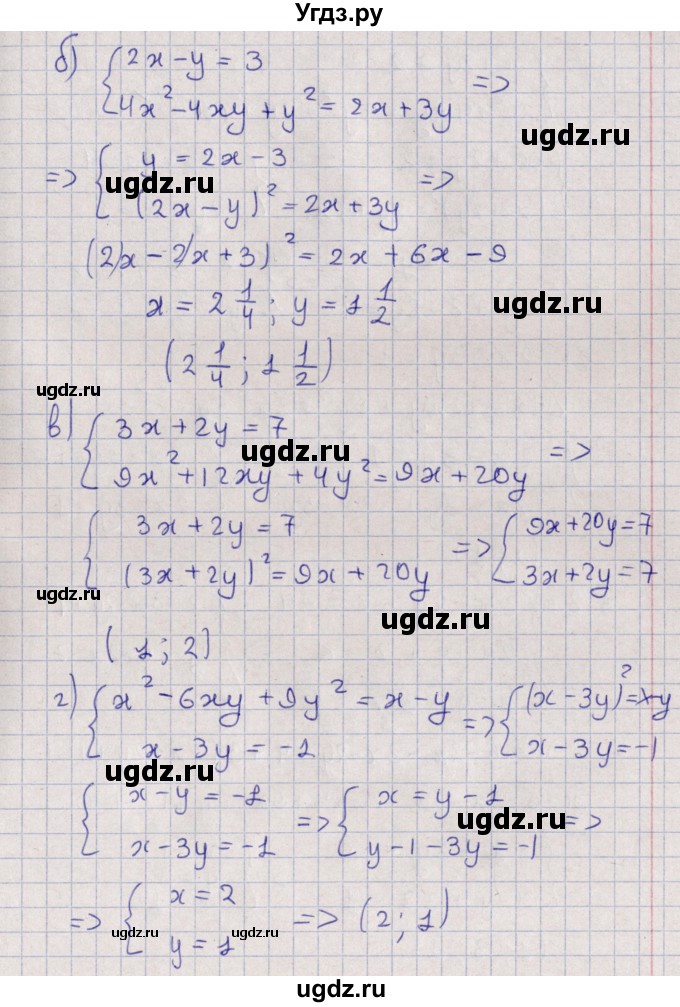 Угдз.ру
б) { 2x - y = 3
4x² - 4xy + y² = 2x + 3y =>
ugdz.ru
=> { y = 2x - 3
(2x - y)² = 2x + 3y =>
ugdz.ru
(2x - 2x + 3)² = 2x + 6x - 9
x = 2 1/4; y = 1 1/2
ugdz.ru
(2 1/4; 1 1/2)
ugdz.ru
в) { 3x + 2y = 7
9x² + 12xy + 4y² = 9x + 20y =>
ugdz.ru
{ 3x + 2y = 7
(3x + 2y)² = 9x + 20y => { 9x + 20y = 7
3x + 2y = 7
ugdz.ru
ugdz.ru
(1; 2)
г) { x² - 6xy + 9y² = x - y
x - 3y = -1 => { (x - 3y)² = x - y
x - 3y = -1
ugdz.ru
{ x - y = -1
x - 3y = -1 => { x = y - 1
y - 1 - 3y = -1 =>
ugdz.ru
=> { x = 2
y = 1 => (2; 1)
ugdz.ru
ugdz.ru
ugdz.ru
ugdz.ru